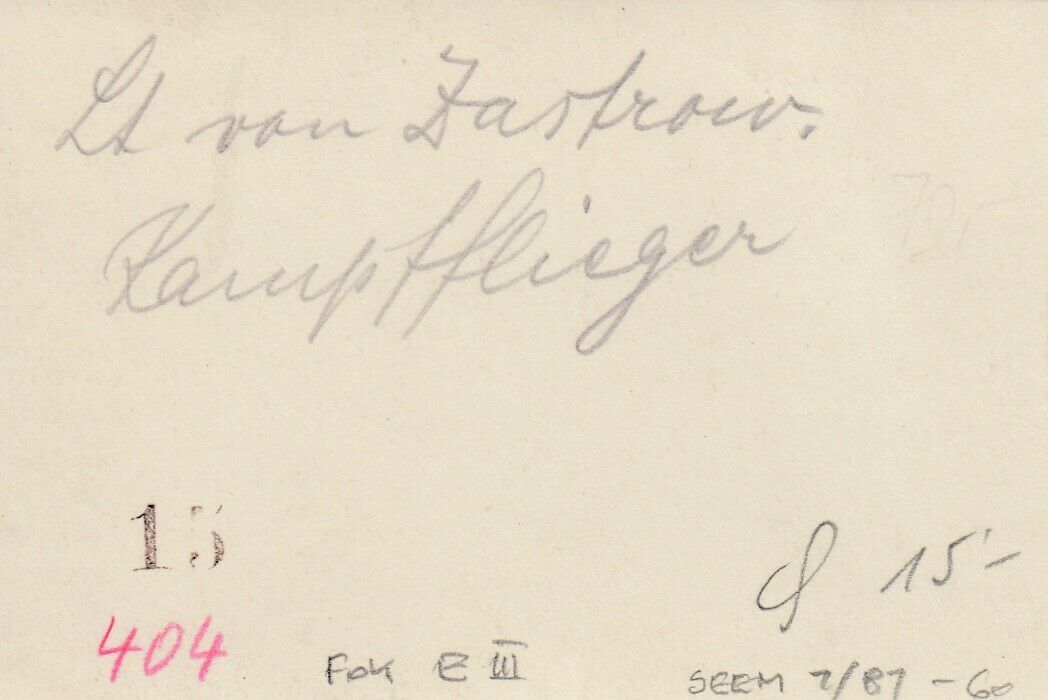 Lt von Zastrow.
Kampfflieger
15
15,-
404
Fok E III
SEEM 7/87 - 60